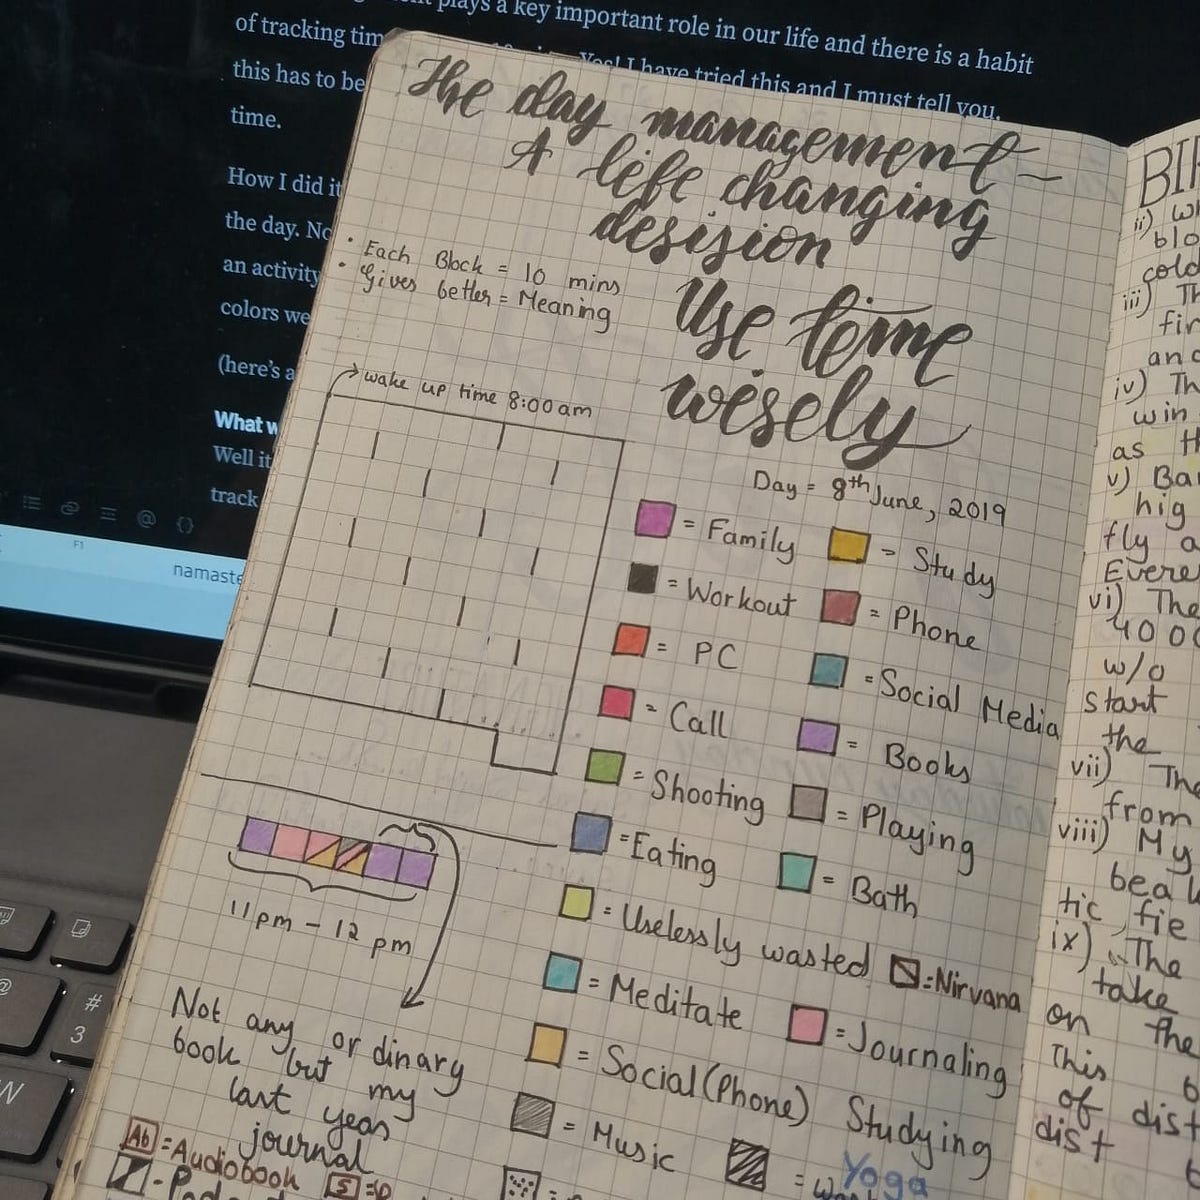 plays a key important role in our life and there is a habit
of tracking
Yes! I have tried this and I must tell you.
this has to be
time.
How I did it
the day.
an activity
colors we
(here's a
What w
Well it
track
F1
namaste
The day management -
A life changing
desision
• Each Block = 10 mins
• Gives better = Meaning
Use time
wisely
wake up time 8:00am
Day = 8th June, 2019
= Family
= Study
= Workout
= Phone
= PC
= Social Media
= Call
= Books
= Shooting
= Playing
= Eating
= Bath
= Uselessly wasted
= Nirvana
= Meditate
= Journaling
= Social (Phone) Studying
= Music
= Yoga
11pm - 12 pm
Not any or dinary
book but my
last year
journal
Ab = Audiobook
S
BI
ii) Wh
blo
cold
iii) Th
fir
and
iv) Th
win
as th
v) Ba
hig
fly a
Evere
vi) The
400
w/o
start
the
vii) The
from
viii) My
bea
tic, fie
ix) The
take
on the
This
of dist
dist
@
#
3
W